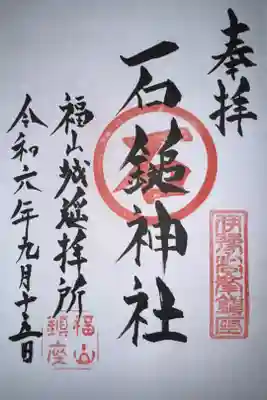 奉拝
石鎚神社
福山城遥拝所
令和六年九月十五日
福山
鎮座